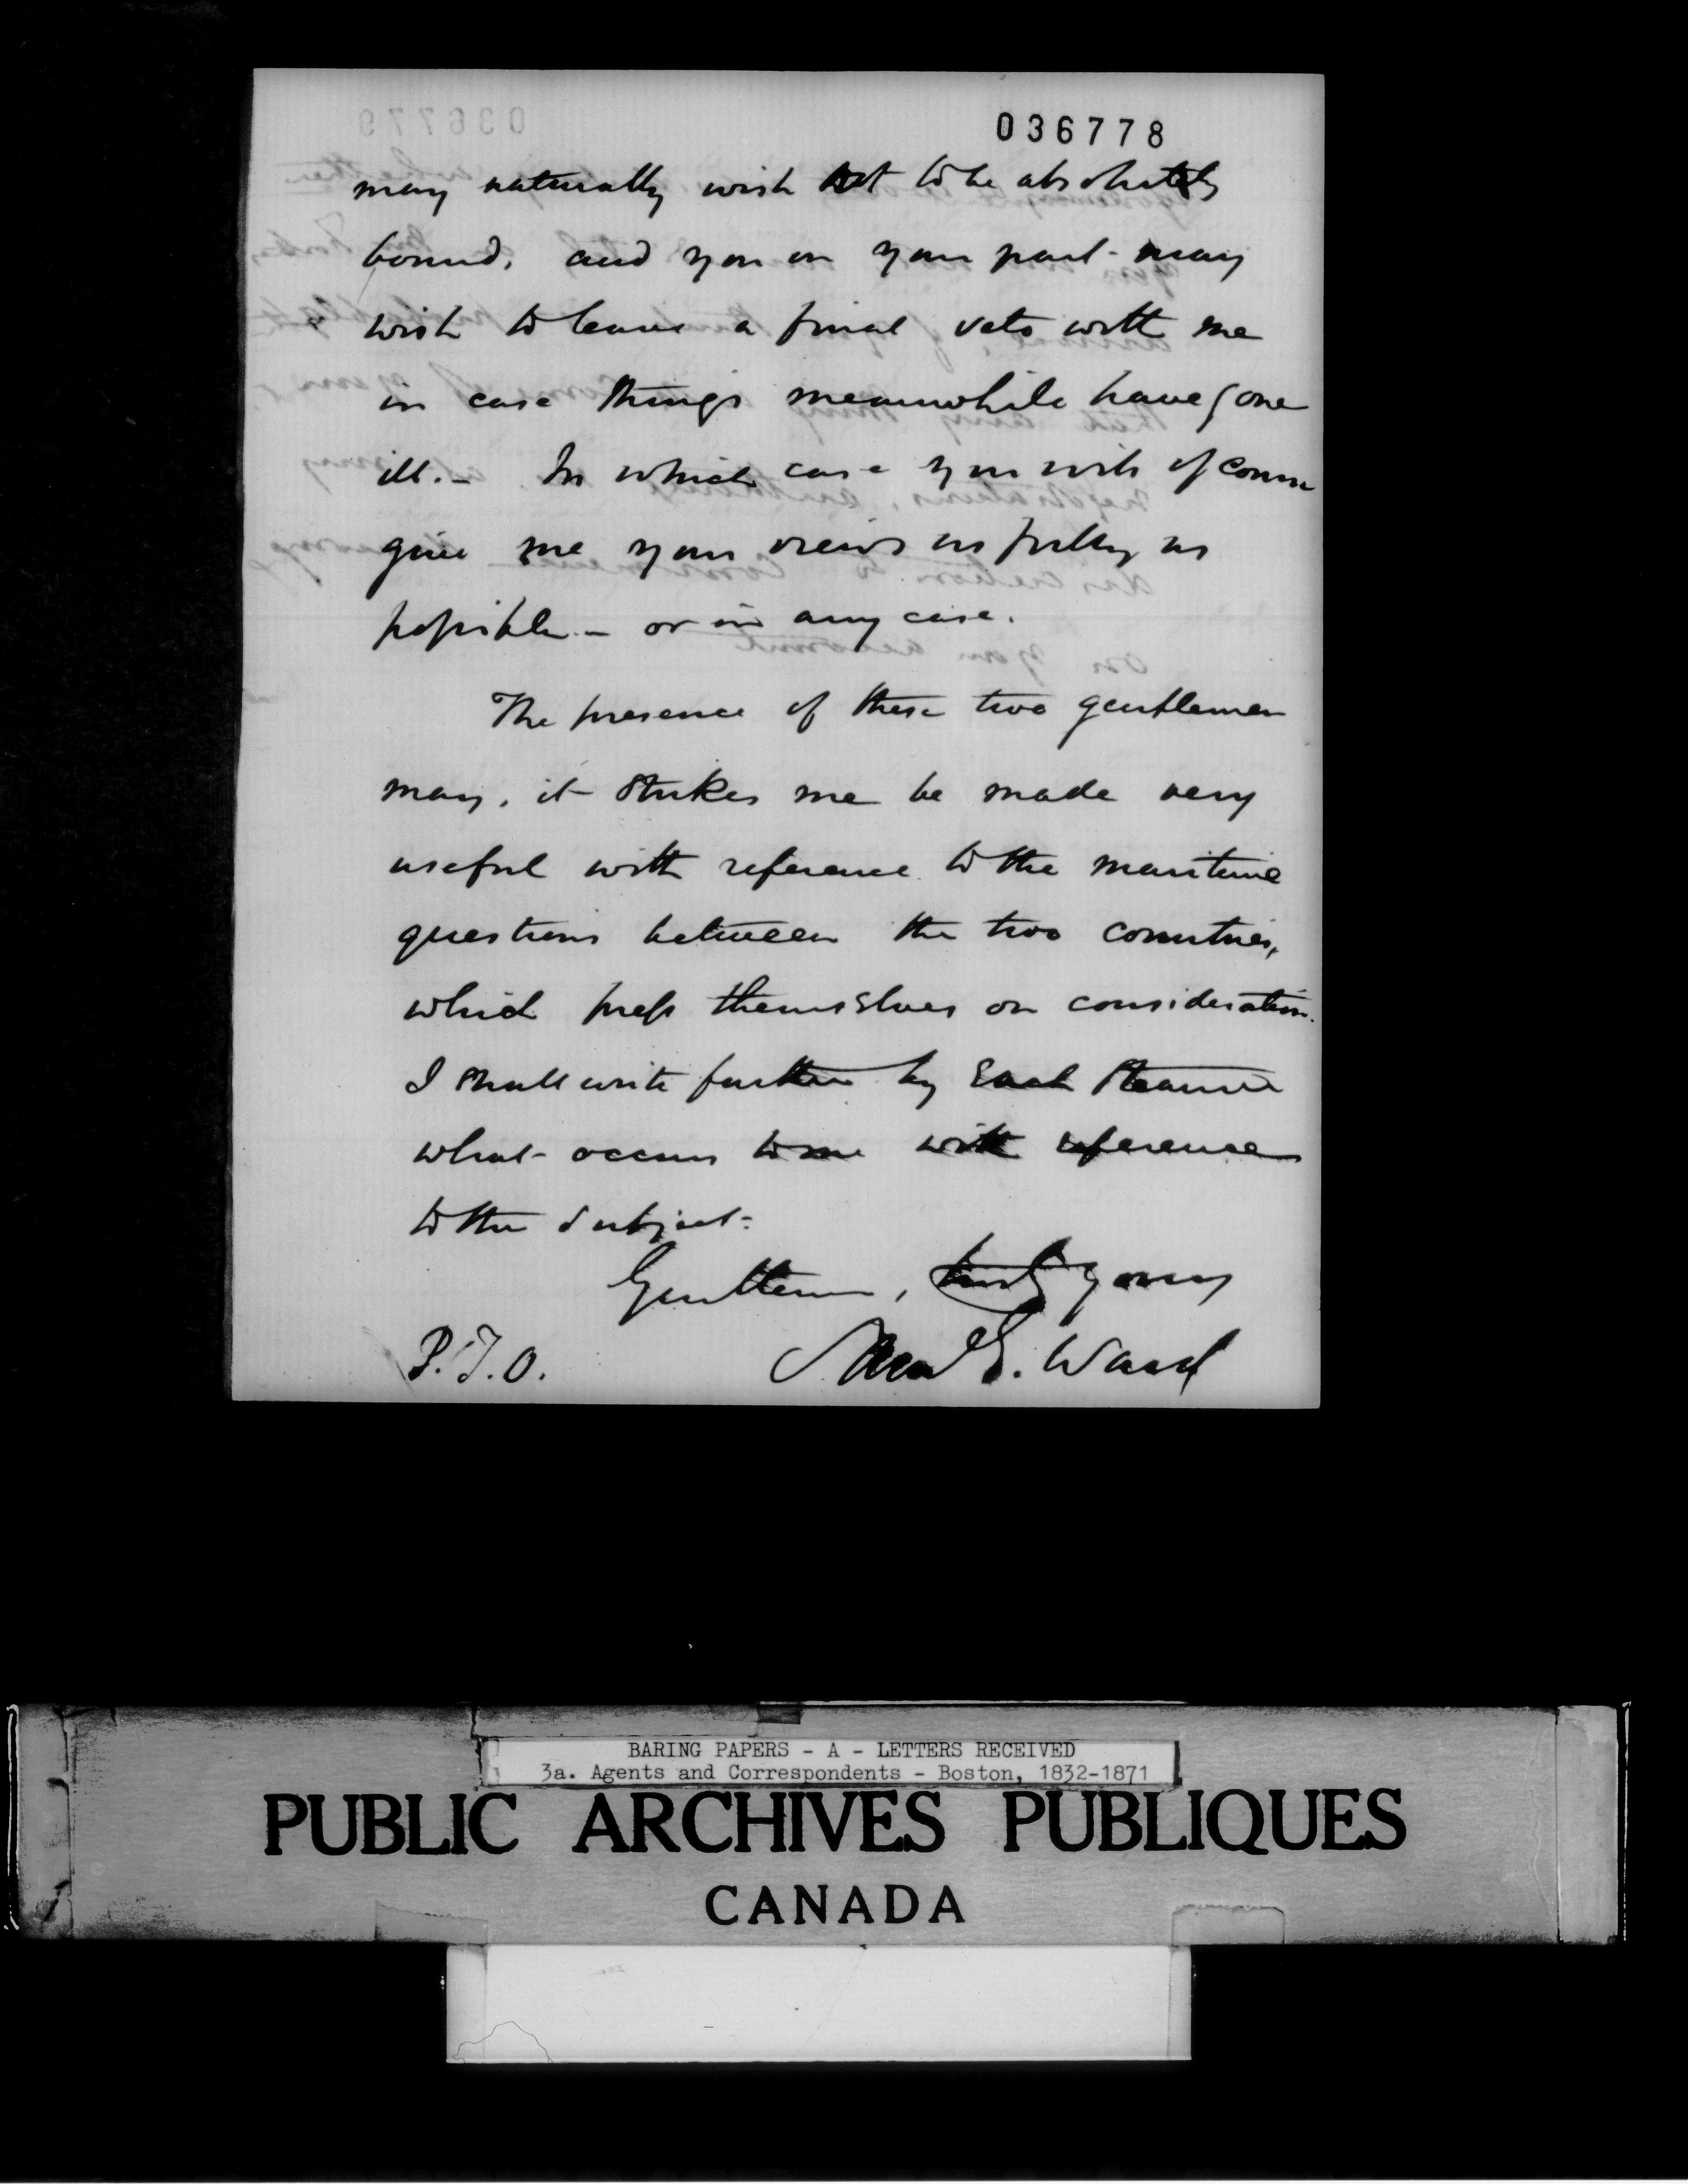 036778
may naturally wish not to be absolutely
bound, and you on your part may
wish to leave a final veto with me
in case things meanwhile have gone
ill. - In which case you will of course
give me your views as fully as
possible - or in any case.
The presence of these two gentlemen
may, it strikes me be made very
useful with reference to the maritime
questions between the two countries,
which press themselves on consideration.
I shall write further by each steamer
what occurs to me with reference
to the subject.
Gentlemen, truly yours
P.T.O.
Saml G. Ward
BARING PAPERS - A - LETTERS RECEIVED
3a. Agents and Correspondents - Boston, 1832-1871
PUBLIC ARCHIVES PUBLIQUES
CANADA